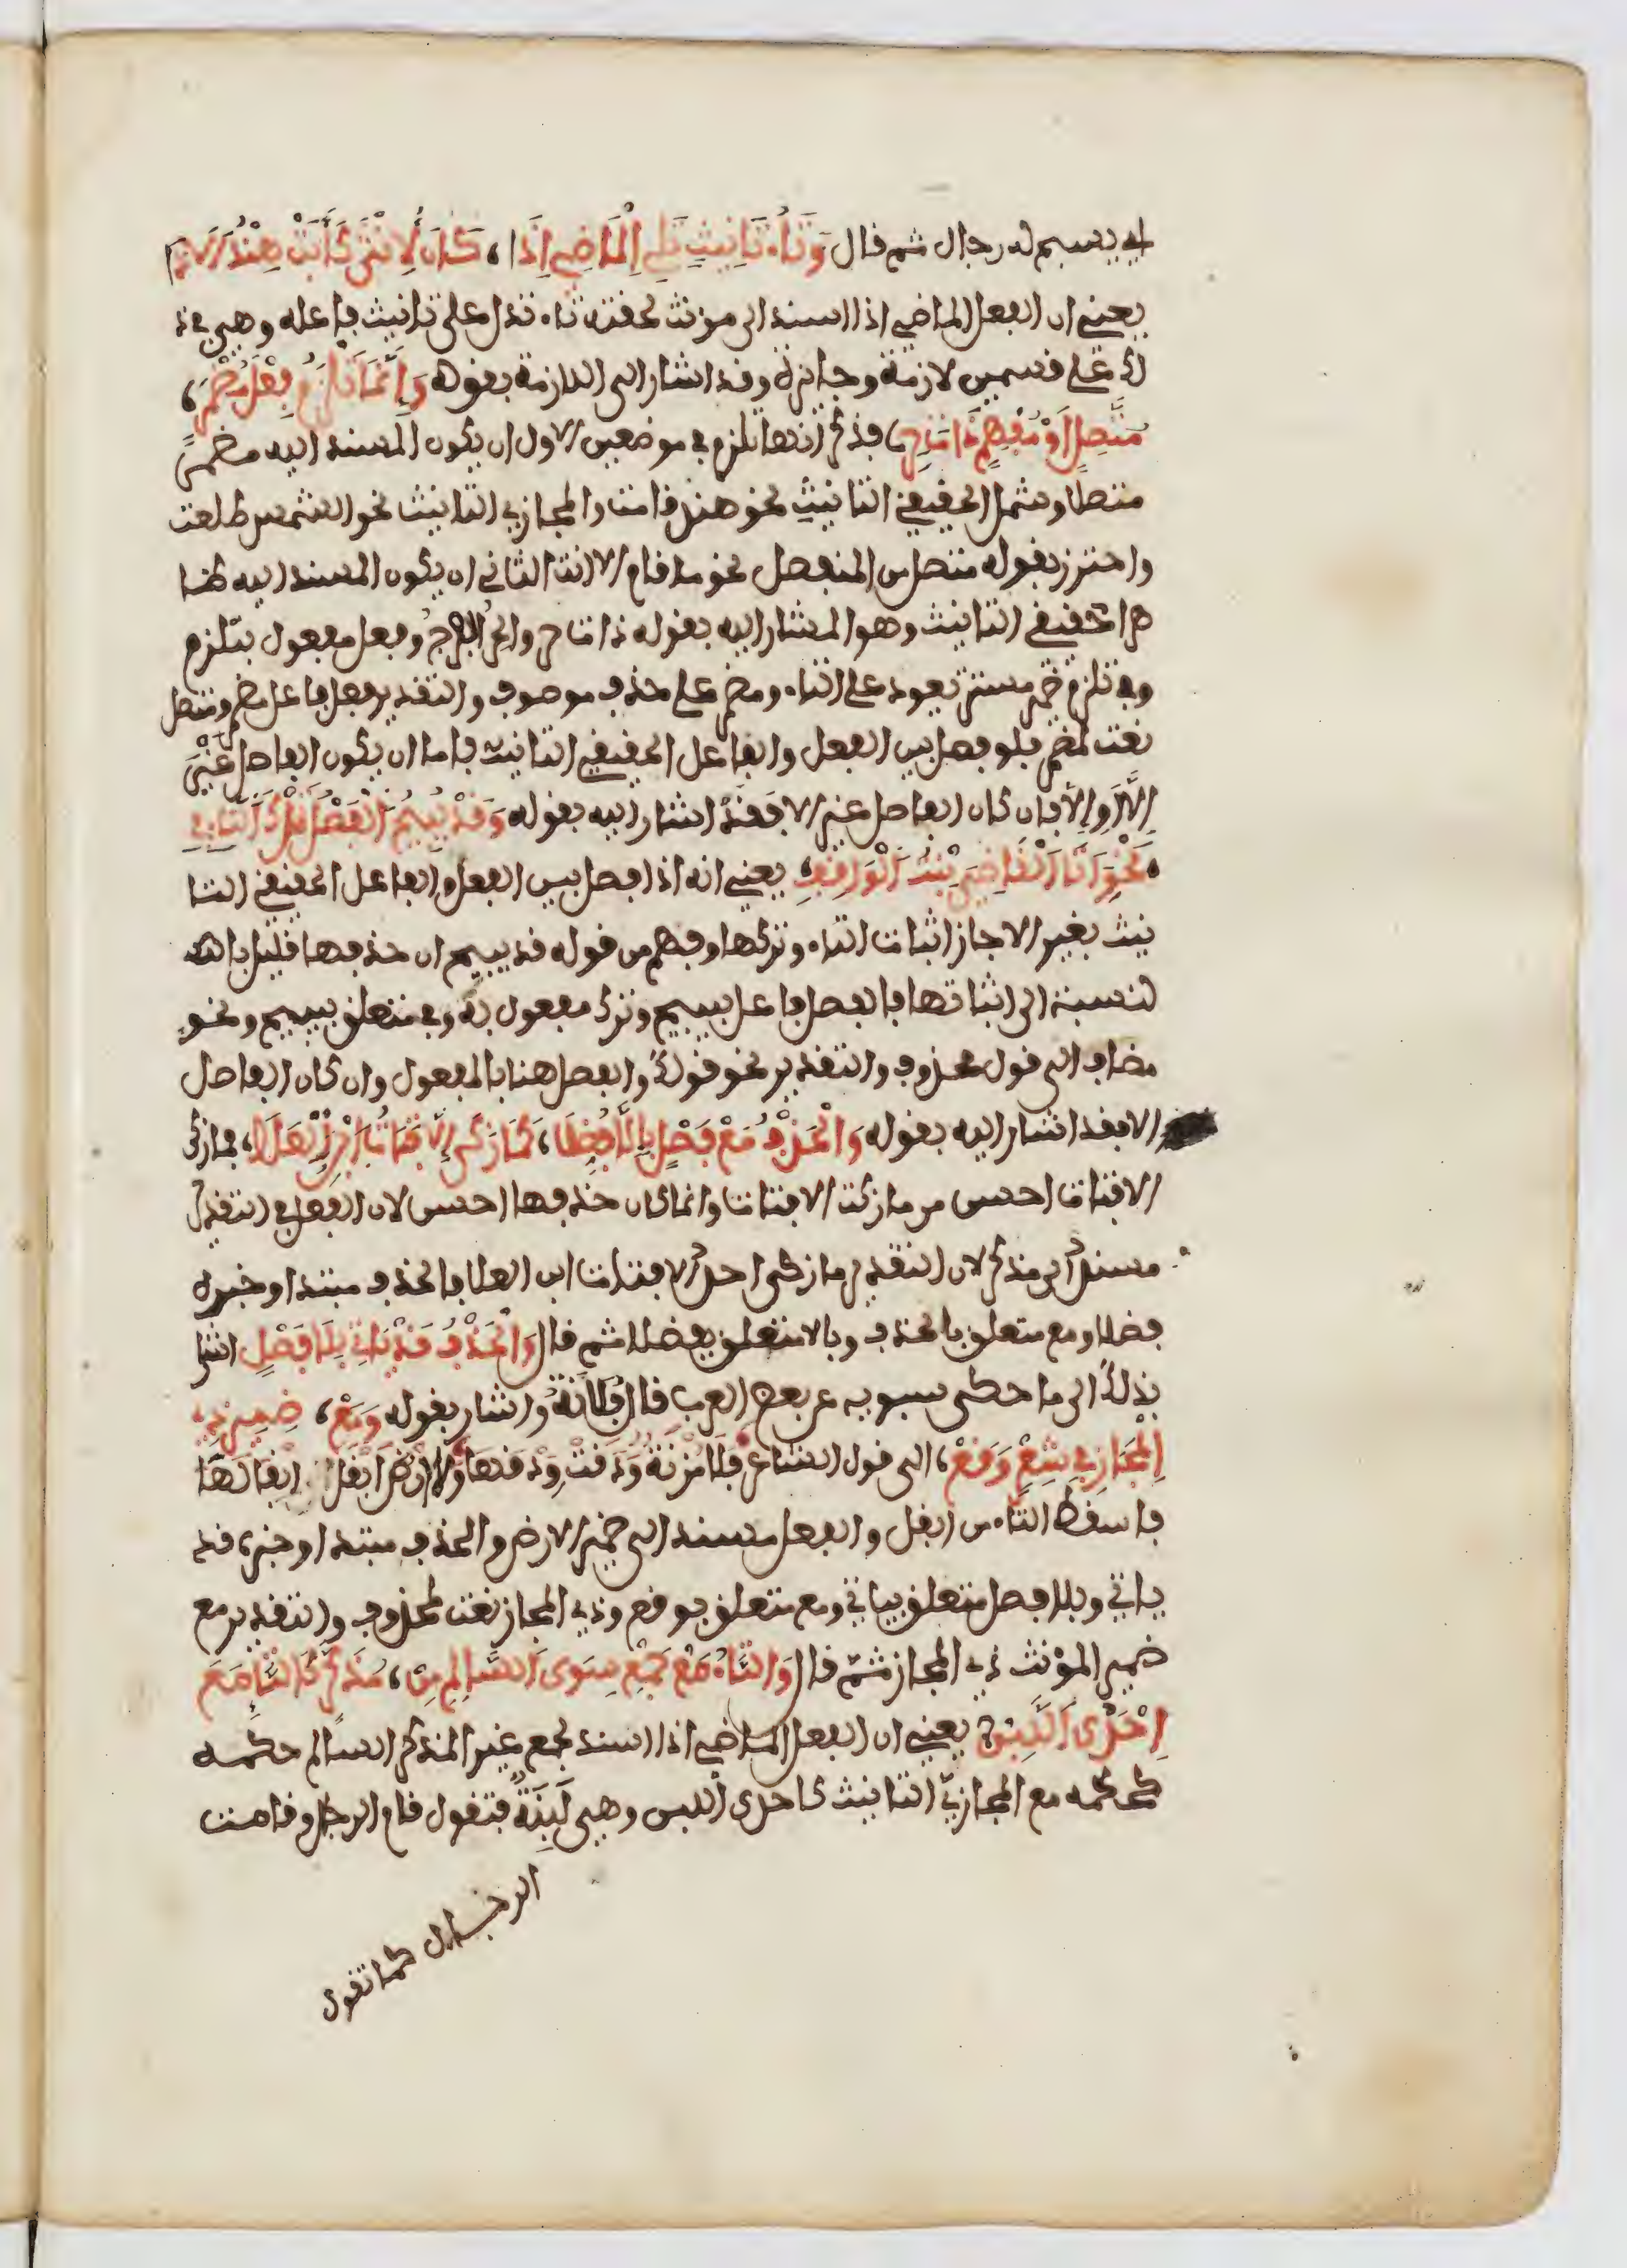 اي يسبح له رجال ثم قال وَتَاءُ تَانِيثٍ تَلِي الْمَاضِي إِذَا، كَانَ لِأُنْثَى كَأَبَتْ هِنْدُ الَاذَى
يعني ان الفعل الماضي اذا اسند الى مونث لحقته تاء تدل على تانيث فاعله وهي في ذ
لك على قسمين لازمة وجايزة وقد اشار الى اللازمة بقوله وَإِنَّمَا تَلْزَمُ فِعْلَ مُضْمَرِ،
مُتَّصِلٍ أَوْ مُفْهِمٍ ذَاتَ حِرِ، فذكر انها تلزم في موضعين الاول ان يكون المسند اليه مضمرً
متصلا وشمل الحقيقي التانيث نحو هند قامت والمجازي التانيث نحو الشمس طلعت
واحترز بقوله متصل من المنفصل نحو ما قام الا انت الثاني ان يكون المسند اليه ظا
هرا حقيقي التانيث وهو المشار اليه بقوله ذات حر والحر الفرج وفعل مفعول بتلزم
وفي تلزم ضمير مستتر يعود على التاء ومضمر على حذف موصوف والتقدير فعل فاعل مضمر ومتصل
نعت لمضمر فلو فصل بين الفعل والفاعل الحقيقي التانيث فاما ان يكون الفاصل غيرَ
إلّا أو إلّا فان كان الفاصل غير الا فقد اشار اليه بقوله وَقَدْ يُبِيحُ الْفَصْلُ تَرْكَ التَّاءِ فِي
، نَحْوِ أَتَى الْقَاضِيَ بِنْتُ الْوَاقِفِ، يعني انه اذا فصل بين الفعل والفاعل الحقيقي التا
نيث بغير الا جاز اثبات التاء وتركها وفهم من قوله قد يبيح ان حذفها قليل بال
لنسبة الى اثباتها فالفصل فاعل بيبيح وترك مفعول به وفي متعلق بيبيح ونحو
مضاف الى قول محذوف والتقدير نحو قولك والفصل هنا بالمفعول وان كان الفاصل
الا فقد اشار اليه بقوله وَالْحَذْفُ مَعْ فَصْلٍ بِإِلَّا فُضِّلَا، كَمَا زَكَى إِلَّا فَتَاةُ ابْنِ الْعَلَا، فما زكى
الا فتاة احسن من ما زكت الا فتاة وانما كان حذفها احسن لان الفعل في التقديـ
مسند الى مذكر لان التقدير ما زكى احد الا فتاة ابن العلا فالحذف مبتدا وخبره
فضلا ومع متعلق بالحذف وبالا متعلق بفضلا ثم قال وَالْحَذْفُ قَدْ يَاتِي بِلَا فَصْلٍ اشار
بذلك الى ما حكى سيبويه عن بعض العرب قال فلانة واشار بقوله وَمَعْ، ضَمِيرِ ذِي
الْمَجَازِ فِي شِعْرٍ وَقَعْ، الى قول الشاعر فَلَا مُزْنَةٌ وَدَقَتْ وَدْقَهَا وَلَا أَرْضَ أَبْقَلَ إِبْقَالَهَا
فاسقط التاء من ابقل والفعل مسند الى ضمير الارض والحذف مبتدا وخبره قد
ياتي وبلا فصل متعلق بياتي ومع متعلق بوقع وذي المجاز نعت لمحذوف والتقدير مع
ضمير المؤنث ذي المجاز ثمّ قال وَالتَّاءُ مَعْ جَمْعٍ سِوَى السَّالِمِ مِنْ، مُذَكَّرٍ كَالتَّا مَعَ
إِحْدَى اللَّبِنْ، يعني ان الفعل الماضي اذا اسند لجمع غير المذكر السالم حكمه
كحكمه مع المجازي التانيث كاحدى اللبن وهي لَبِنَةٌ فتقول قام الرجال وقامت
الرجال كما تقول